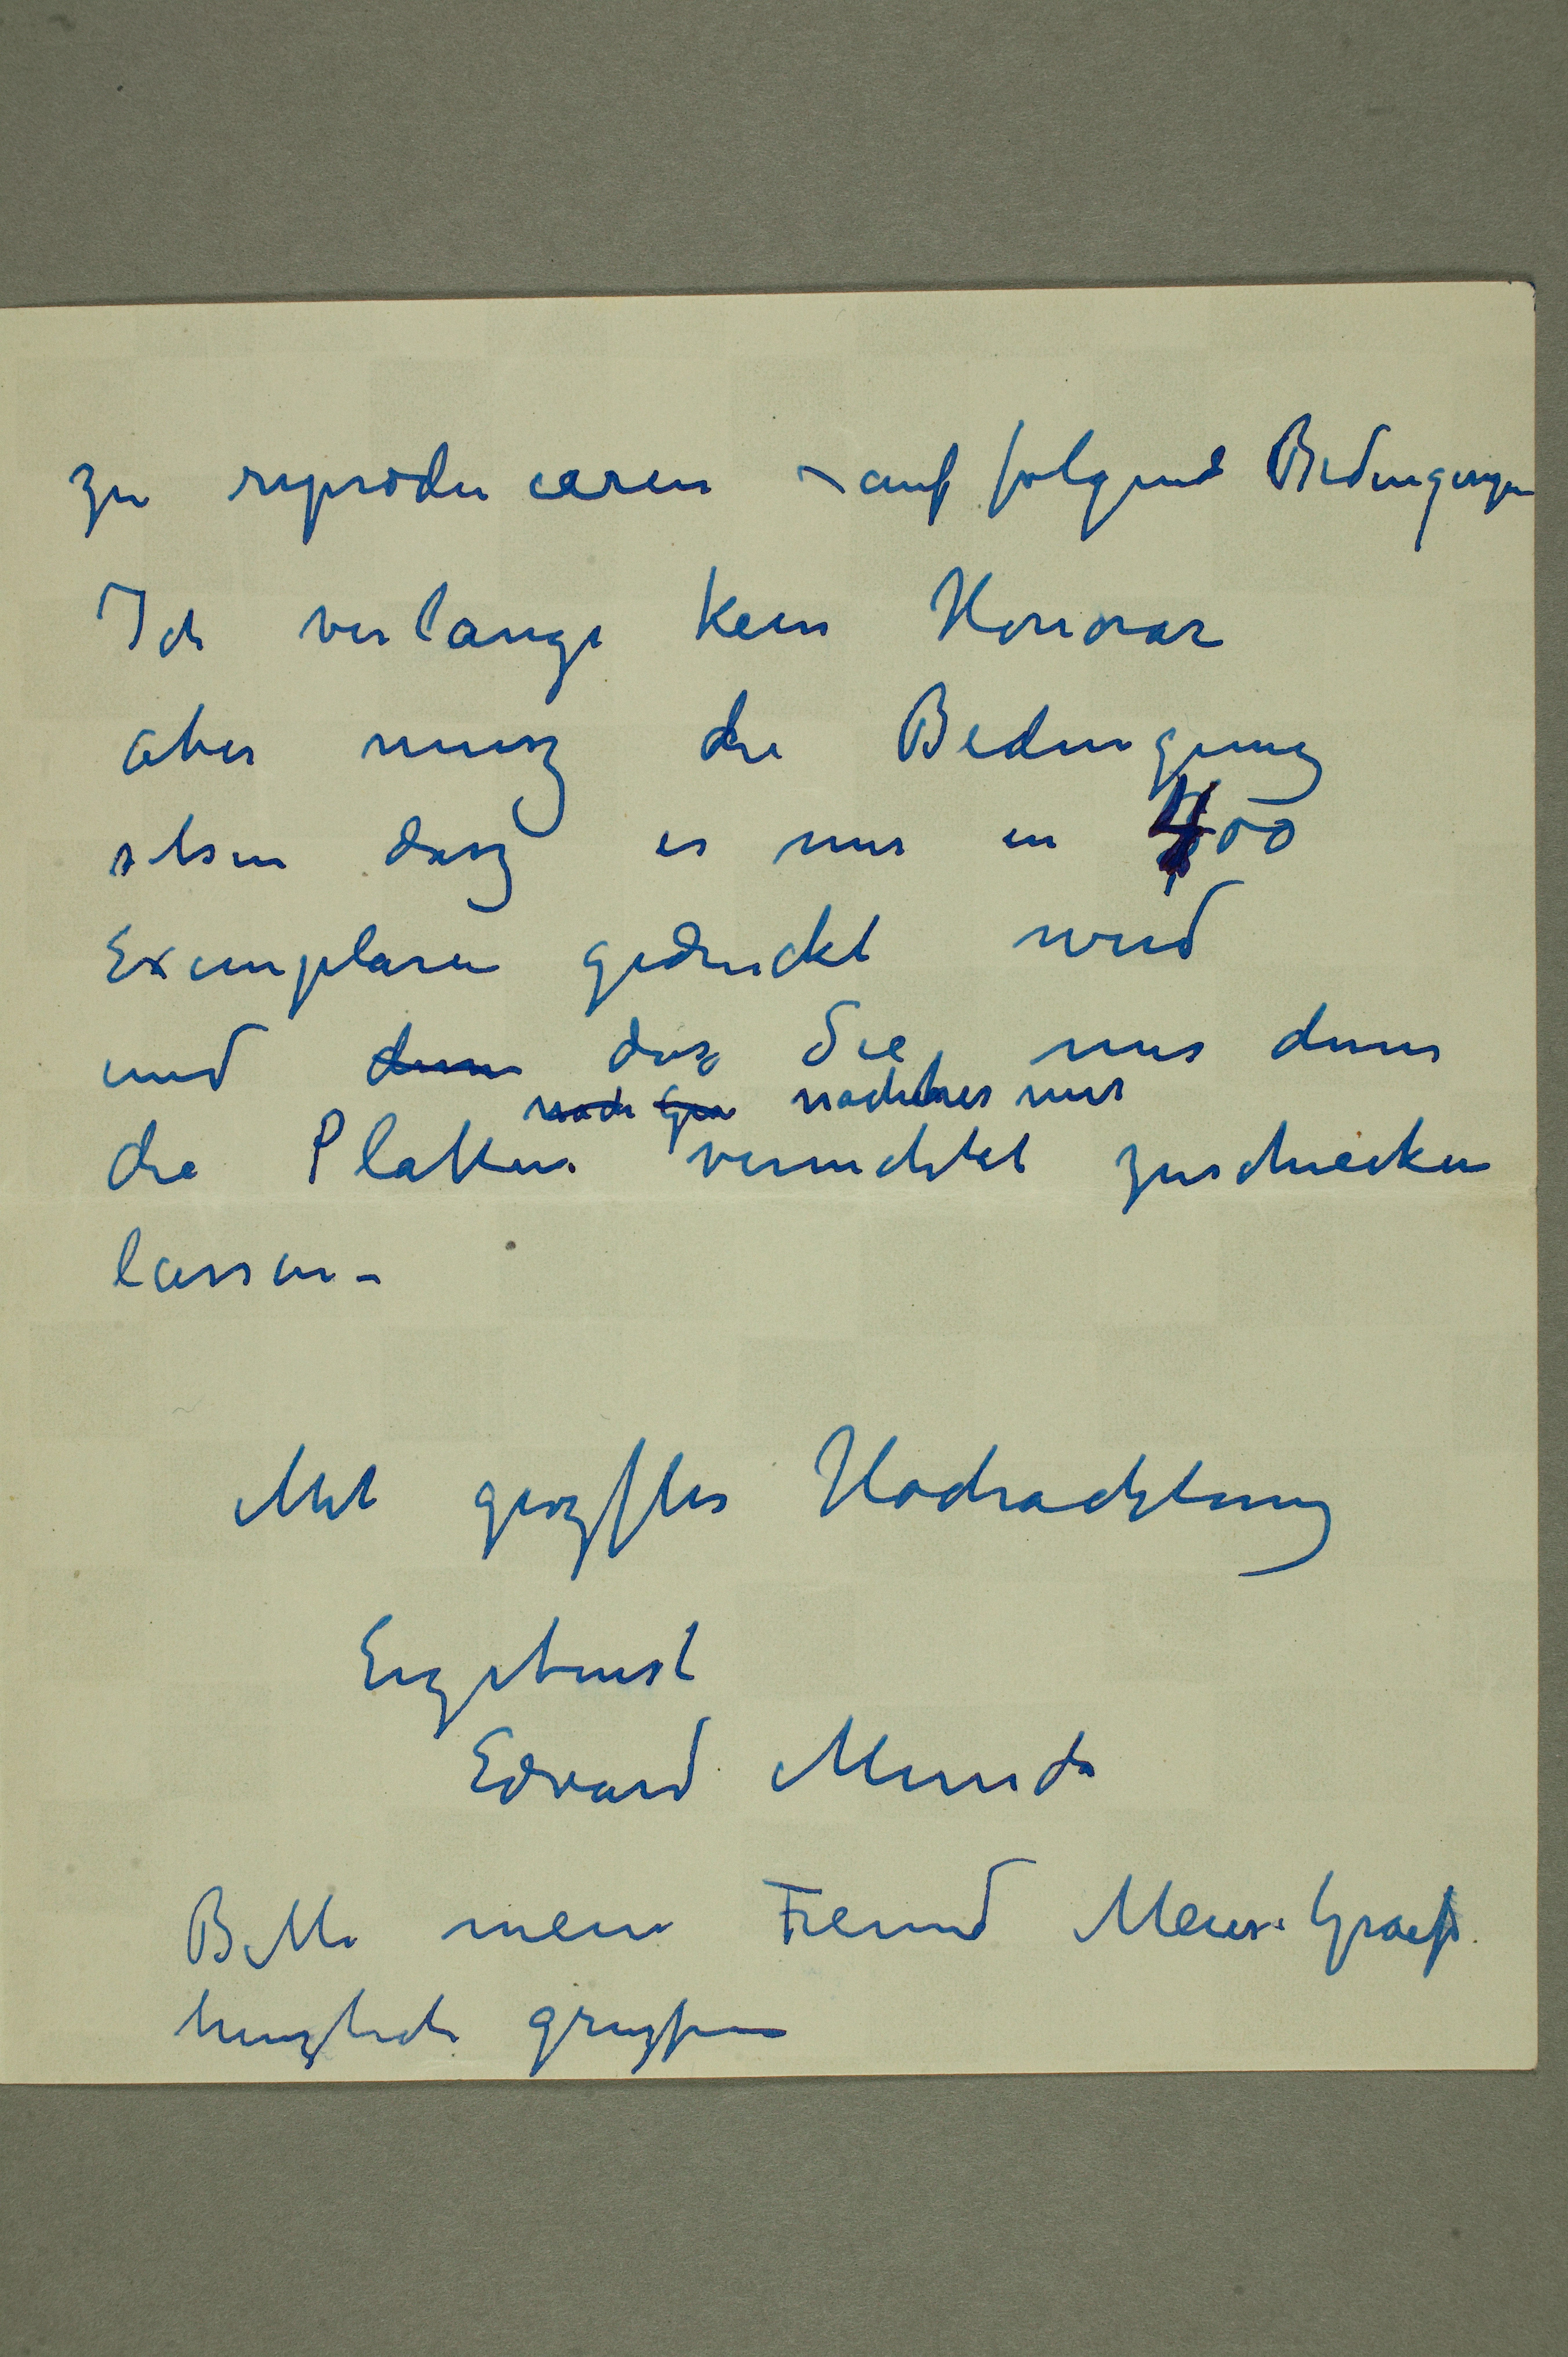 zu reproduceren – auf folgende Bedingungen
Ich verlange kein Honorar
aber musz die Bedingung
setzen dasz es nur in 400
Exemplaren gedruckt wird
und dann dasz Sie mir dann
nach nachher mir
die Platten vernichtet zuschiecken
lassen –
Mit groszster Hochachtung
Ergebenst
Edvard Munch
Bitte mein Freund Meier-Graefe
herzlich gruszen